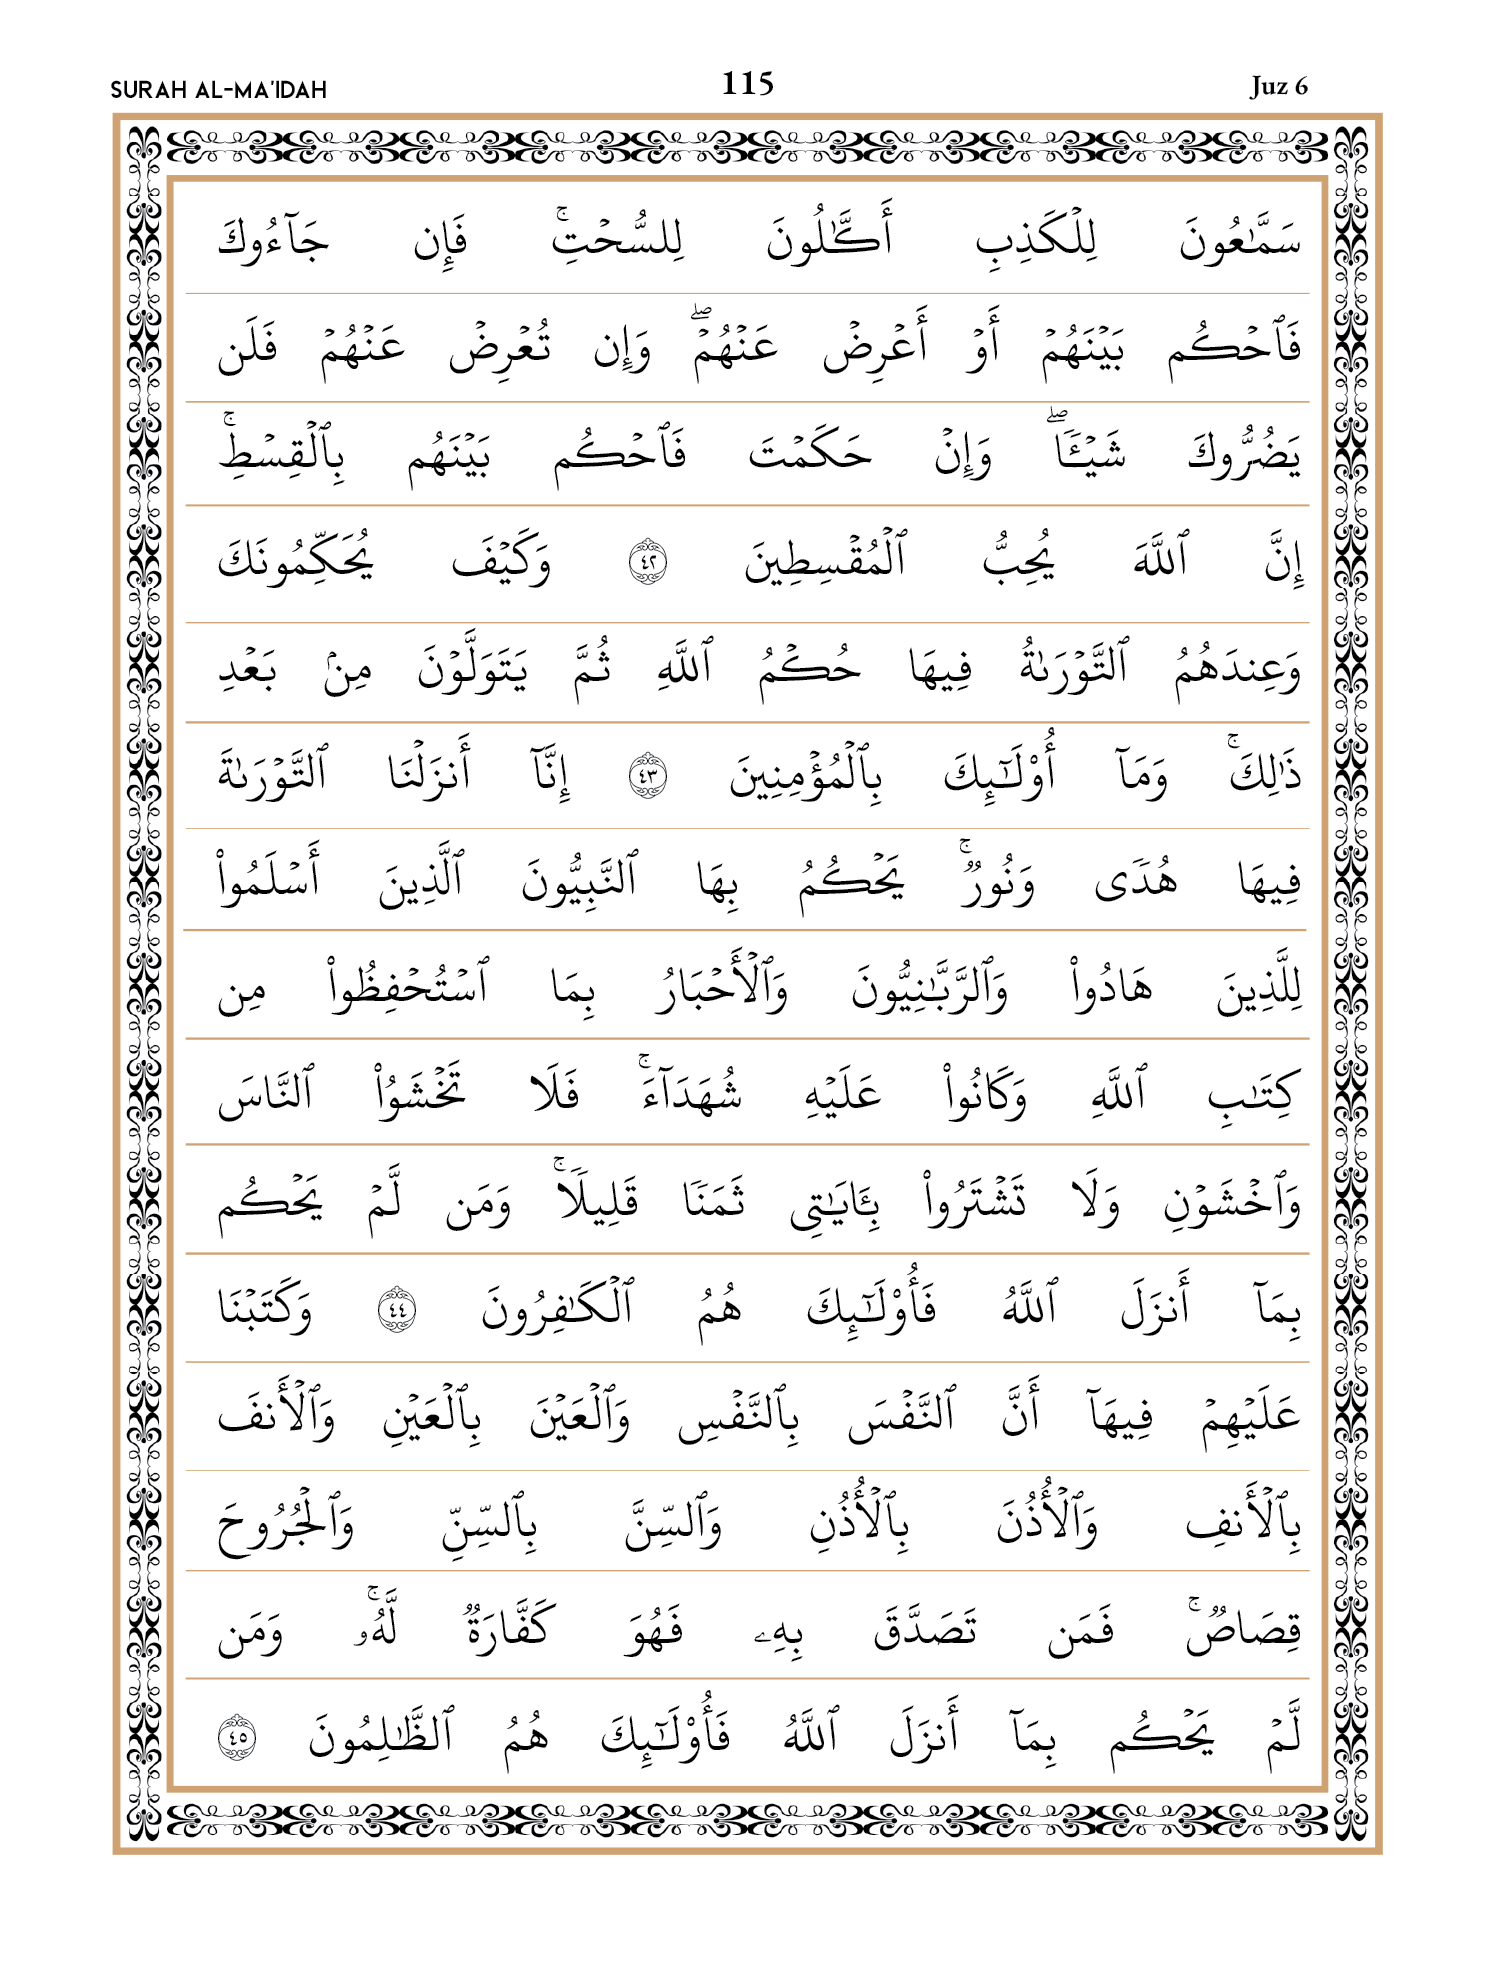 SURAH AL-MA'IDAH 115 Juz 6
سَمَّـٰعُونَ لِلْكَذِبِ أَكَّـٰلُونَ لِلسُّحْتِ ۚ فَإِن جَآءُوكَ
فَٱحْكُم بَيْنَهُمْ أَوْ أَعْرِضْ عَنْهُمْ ۖ وَإِن تُعْرِضْ عَنْهُمْ فَلَن
يَضُرُّوكَ شَيْـًٔا ۖ وَإِنْ حَكَمْتَ فَٱحْكُم بَيْنَهُم بِٱلْقِسْطِ ۚ
إِنَّ ٱللَّهَ يُحِبُّ ٱلْمُقْسِطِينَ ٤٢ وَكَيْفَ يُحَكِّمُونَكَ
وَعِندَهُمُ ٱلتَّوْرَىٰةُ فِيهَا حُكْمُ ٱللَّهِ ثُمَّ يَتَوَلَّوْنَ مِنۢ بَعْدِ
ذَٰلِكَ ۚ وَمَآ أُو۟لَـٰٓئِكَ بِٱلْمُؤْمِنِينَ ٤٣ إِنَّآ أَنزَلْنَا ٱلتَّوْرَىٰةَ
فِيهَا هُدًى وَنُورٌ ۚ يَحْكُمُ بِهَا ٱلنَّبِيُّونَ ٱلَّذِينَ أَسْلَمُوا۟
لِلَّذِينَ هَادُوا۟ وَٱلرَّبَّـٰنِيُّونَ وَٱلْأَحْبَارُ بِمَا ٱسْتُحْفِظُوا۟ مِن
كِتَـٰبِ ٱللَّهِ وَكَانُوا۟ عَلَيْهِ شُهَدَآءَ ۚ فَلَا تَخْشَوُا۟ ٱلنَّاسَ
وَٱخْشَوْنِ وَلَا تَشْتَرُوا۟ بِـَٔايَـٰتِى ثَمَنًا قَلِيلًا ۚ وَمَن لَّمْ يَحْكُم
بِمَآ أَنزَلَ ٱللَّهُ فَأُو۟لَـٰٓئِكَ هُمُ ٱلْكَـٰفِرُونَ ٤٤ وَكَتَبْنَا
عَلَيْهِمْ فِيهَآ أَنَّ ٱلنَّفْسَ بِٱلنَّفْسِ وَٱلْعَيْنَ بِٱلْعَيْنِ وَٱلْأَنفَ
بِٱلْأَنفِ وَٱلْأُذُنَ بِٱلْأُذُنِ وَٱلسِّنَّ بِٱلسِّنِّ وَٱلْجُرُوحَ
قِصَاصٌ ۚ فَمَن تَصَدَّقَ بِهِۦ فَهُوَ كَفَّارَةٌ لَّهُۥ ۚ وَمَن
لَّمْ يَحْكُم بِمَآ أَنزَلَ ٱللَّهُ فَأُو۟لَـٰٓئِكَ هُمُ ٱلظَّـٰلِمُونَ ٤٥